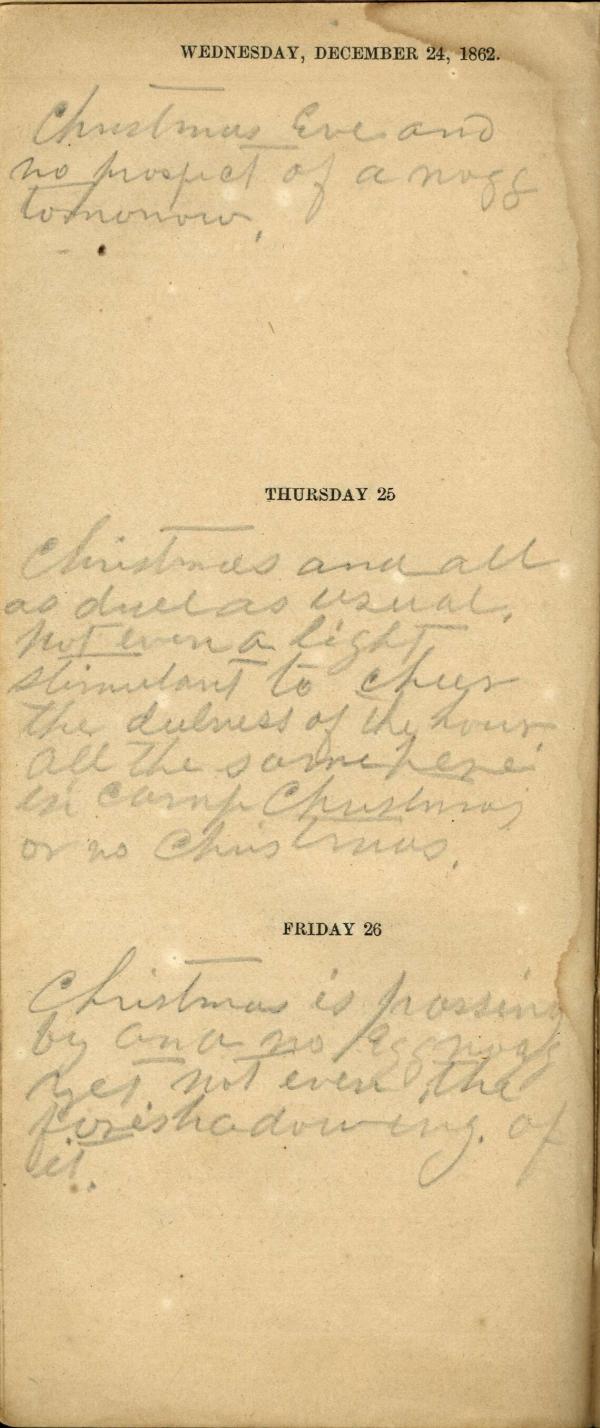 WEDNESDAY, DECEMBER 24, 1862.
Christmas Eve and
no prospect of a nogg
tomorrow.
THURSDAY 25
Christmas and all
as duel as usual,
not even a light
stimulant to cheer
the dulness of the hour
all the same here
in camp Christmas
or no Christmas.
FRIDAY 26
Christmas is passing
by and no Eggnogg
yet not even the
foreshadowing of
it.